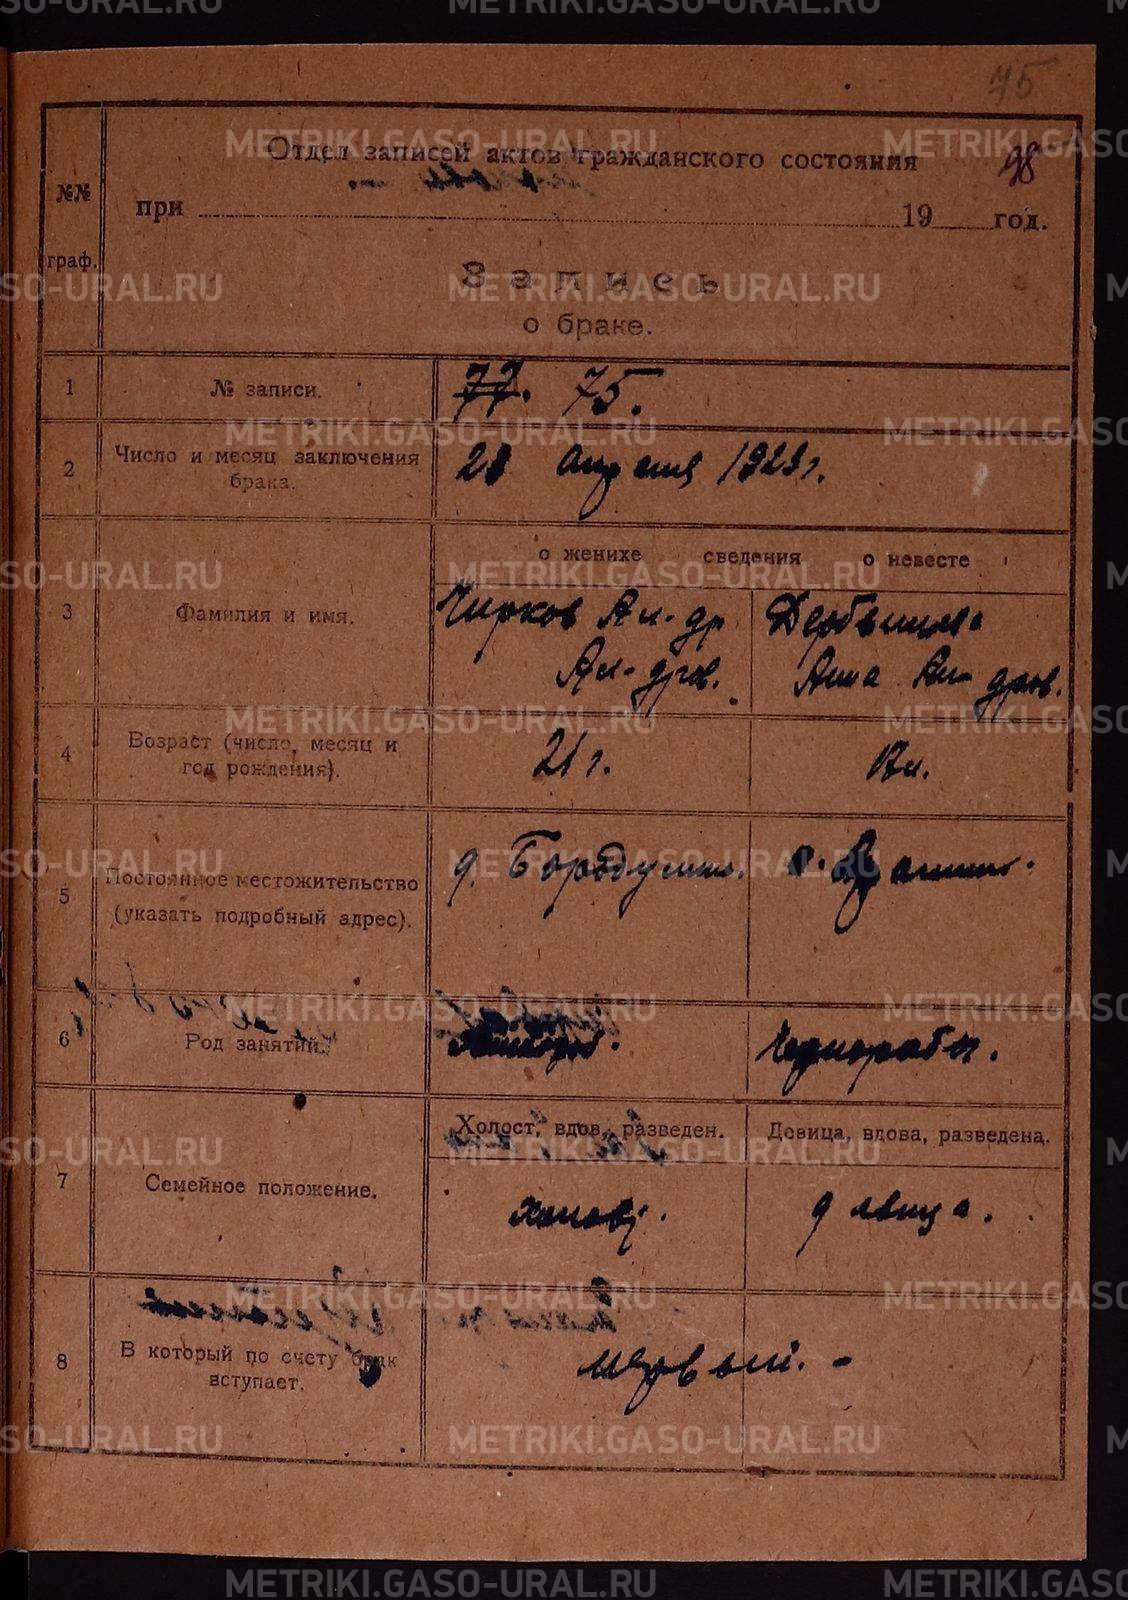 75
Отдел записей актов гражданского состояния
98
№№
граф.
при 19 год.
Запись
о браке.
1 № записи. 77. 75.
2 Число и месяц заключения брака. 28 апреля 1929 г.
о женихе сведения о невесте
3 Фамилия и имя.
Чирков Ал-др
Ал-дров.
Дербышева
Анна Ал-дров.
4 Возраст (число, месяц и
год рождения). 21 г.
5 Постоянное местожительство
(указать подробный адрес).
д. Бородулина.
6 Род занятий. Чернорабоч.
Холост, вдов, разведен. Девица, вдова, разведена.
7 Семейное положение. холост. девица.
8 В который по счету брак
вступает. первый. -
METRIKI.GASO-URAL.RU